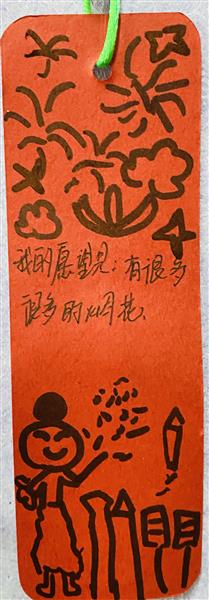 我的愿望是：有很多
很多的烟花、